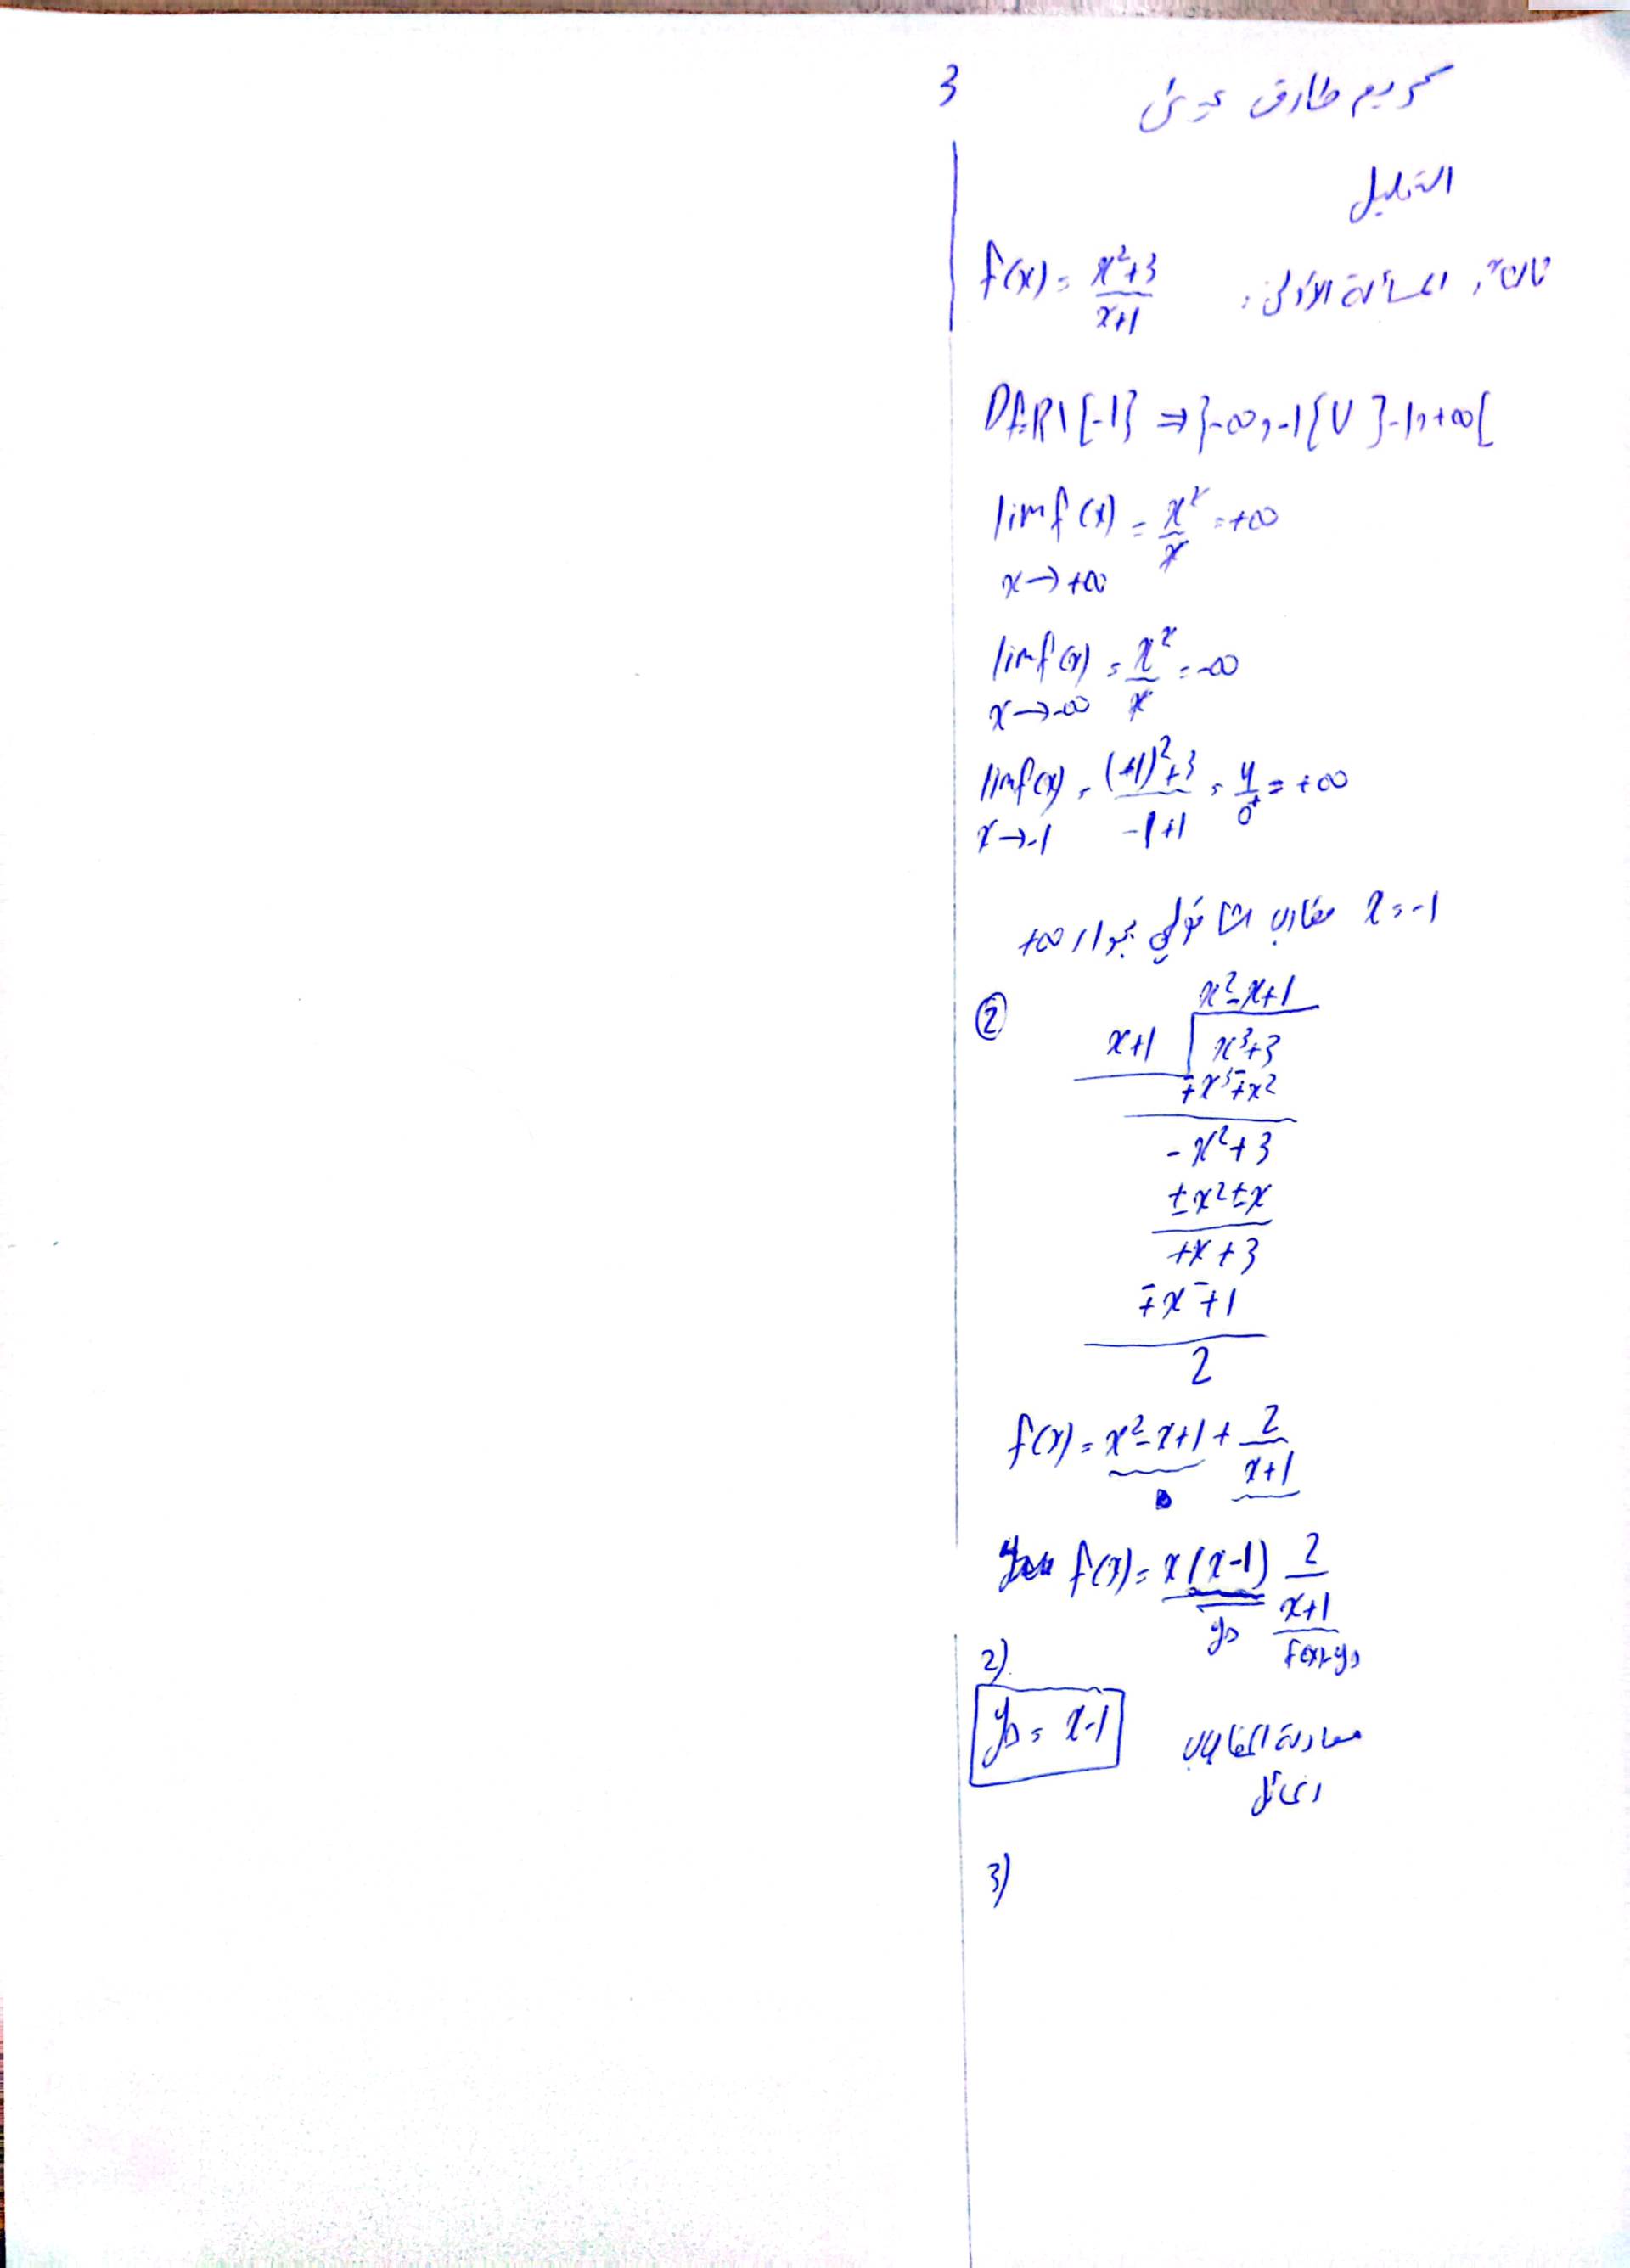 3
كريم طارق
التحليل
ثالثاً، المسألة الأولى: f(x) = x²+3 / x+1
Df=R\{-1} ⇒ }-∞, -1{ U }-1, +∞[
lim f(x) = x²/x = +∞
x→+∞
lim f(x) = x²/x = -∞
x→-∞
lim f(x) = (+1)²+3 / -1+1 = 4/0⁺ = +∞
x→-1
x = -1 مقارب شاقولي بجوار +∞
②
x²-x+1
x+1 x³+3
∓x³∓x²
-x²+3
±x²±x
+x+3
∓x∓1
2
f(x) = x²-x+1 + 2/x+1
f(x) = x(x-1) 2/x+1
yΔ f(x)-yΔ
2)
yΔ = x-1 معادلة المقارب
المائل
3)